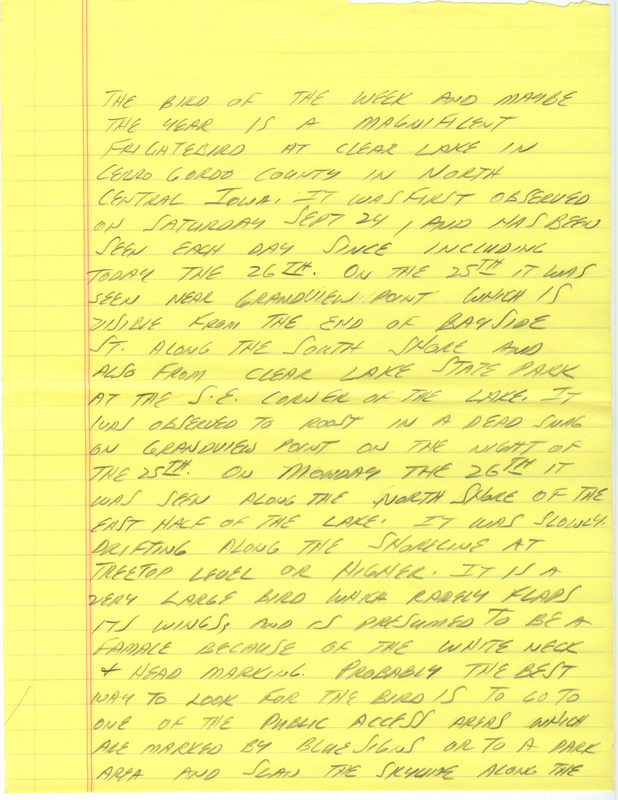 THE BIRD OF THE WEEK AND MAYBE
THE YEAR IS A MAGNIFICENT
FRIGATEBIRD AT CLEAR LAKE IN
CERRO GORDO COUNTY IN NORTH
CENTRAL IOWA. IT WAS FIRST OBSERVED
ON SATURDAY SEPT 24, AND HAS BEEN
SEEN EACH DAY SINCE INCLUDING
TODAY THE 26TH. ON THE 25TH IT WAS
SEEN NEAR GRANDVIEW POINT WHICH IS
VISIBLE FROM THE END OF BAYSIDE
ST. ALONG THE SOUTH SHORE AND
ALSO FROM CLEAR LAKE STATE PARK
AT THE S.E. CORNER OF THE LAKE. IT
WAS OBSERVED TO ROOST IN A DEAD SNAG
ON GRANDVIEW POINT ON THE NIGHT OF
THE 25TH. ON MONDAY THE 26TH IT
WAS SEEN ALONG THE NORTH SHORE OF THE
EAST HALF OF THE LAKE. IT WAS SLOWLY
DRIFTING ALONG THE SHORELINE AT
TREETOP LEVEL OR HIGHER. IT IS A
VERY LARGE BIRD WHICH RARELY FLAPS
ITS WINGS, AND IS PRESUMED TO BE A
FAMALE BECAUSE OF THE WHITE NECK
+ HEAD MARKING. PROBABLY THE BEST
WAY TO LOOK FOR THE BIRD IS TO GO TO
ONE OF THE PUBLIC ACCESS AREAS WHICH
ARE MARKED BY BLUE SIGNS OR TO A PARK
AREA AND SCAN THE SKYLINE ALONG THE